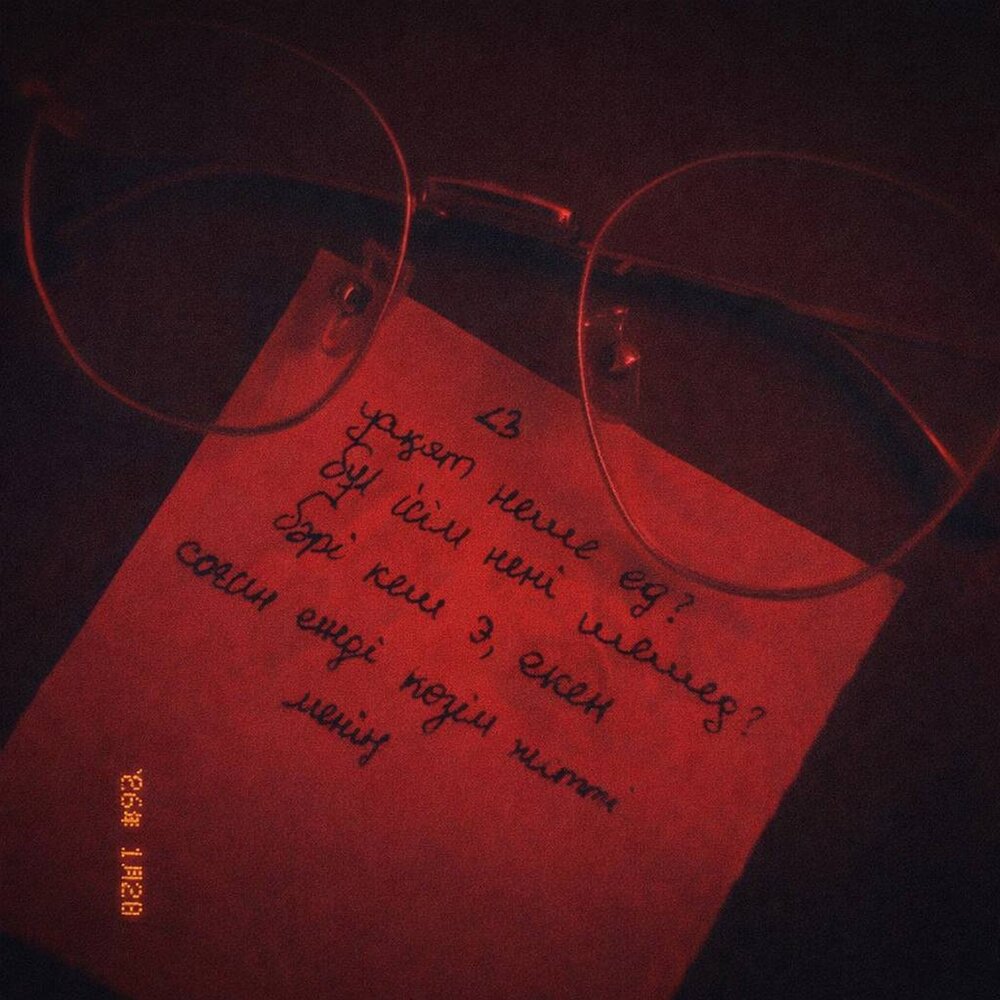 <3
уақыт неше ед?
бұл ісім нені шешед?
бәрі кеш э, екен
соған енді көзім жетті
менің